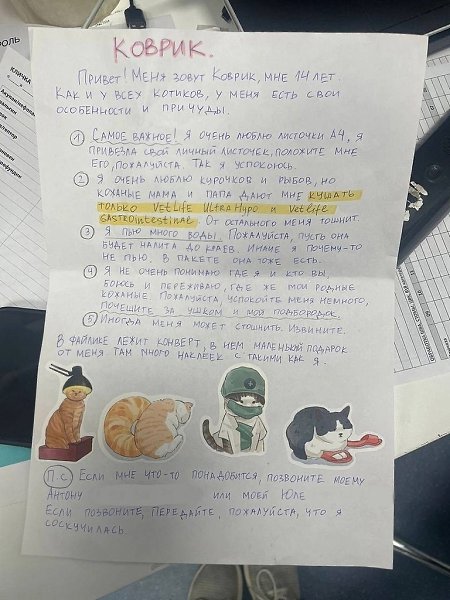 КОВРИК.
ПРИВЕТ! МЕНЯ ЗОВУТ КОВРИК, МНЕ 14 ЛЕТ.
КАК И У ВСЕХ КОТИКОВ, У МЕНЯ ЕСТЬ СВОИ
ОСОБЕННОСТИ И ПРИЧУДЫ.
① САМОЕ ВАЖНОЕ! Я ОЧЕНЬ ЛЮБЛЮ ЛИСТОЧКИ А4, Я
ПРИВЕЗЛА СВОЙ ЛИЧНЫЙ ЛИСТОЧЕК, ПОЛОЖИТЕ МНЕ
ЕГО, ПОЖАЛУЙСТА. ТАК Я УСПОКОЮСЬ.
② Я ОЧЕНЬ ЛЮБЛЮ КУРОЧКОВ И РЫБОВ, НО
КОЖАНЫЕ МАМА И ПАПА ДАЮТ МНЕ КУШАТЬ
ТОЛЬКО VETLIFE ULTRAHYPO И VETLIFE
GASTROINTESTINAL. ОТ ОСТАЛЬНОГО МЕНЯ ТОШНИТ.
③ Я ПЬЮ МНОГО ВОДЫ. ПОЖАЛУЙСТА, ПУСТЬ ОНА
БУДЕТ НАЛИТА ДО КРАЕВ. ИНАЧЕ Я ПОЧЕМУ-ТО
НЕ ПЬЮ. В ПАКЕТЕ ОНА ТОЖЕ ЕСТЬ.
④ Я НЕ ОЧЕНЬ ПОНИМАЮ ГДЕ Я И КТО ВЫ,
БОЮСЬ И ПЕРЕЖИВАЮ, ГДЕ ЖЕ МОИ РОДНЫЕ
КОЖАНЫЕ. ПОЖАЛУЙСТА, УСПОКОЙТЕ МЕНЯ НЕМНОГО,
ПОЧЕШИТЕ ЗА УШКОМ И МОЙ ПОДБОРОДОК.
⑤ ИНОГДА МЕНЯ МОЖЕТ СТОШНИТЬ. ИЗВИНИТЕ.
В ФАЙЛИКЕ ЛЕЖИТ КОНВЕРТ, В НЕМ МАЛЕНЬКИЙ ПОДАРОК
ОТ МЕНЯ. ТАМ МНОГО НАКЛЕЕК С ТАКИМИ КАК Я.
П.С. ЕСЛИ МНЕ ЧТО-ТО ПОНАДОБИТСЯ, ПОЗВОНИТЕ МОЕМУ
АНТОНУ ИЛИ МОЕЙ ЮЛЕ
ЕСЛИ ПОЗВОНИТЕ, ПЕРЕДАЙТЕ, ПОЖАЛУЙСТА, ЧТО Я
СОСКУЧИЛАСЬ
КЛИЧКА